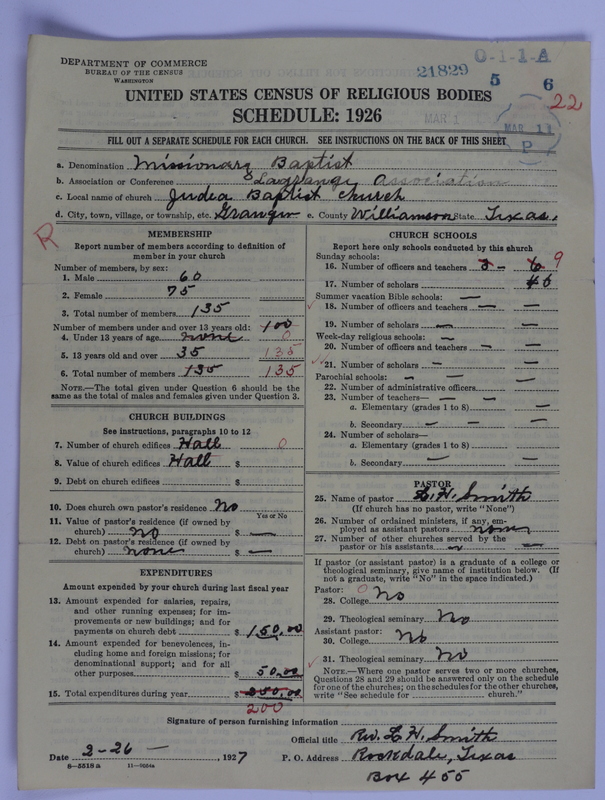 DEPARTMENT OF COMMERCE
BUREAU OF THE CENSUS
WASHINGTON
21829
0-1-1-A
5 6
22
UNITED STATES CENSUS OF RELIGIOUS BODIES
SCHEDULE: 1926
MAR 1
MAR 11
P
FILL OUT A SEPARATE SCHEDULE FOR EACH CHURCH. SEE INSTRUCTIONS ON THE BACK OF THIS SHEET
a. Denomination Missionary Baptist
b. Association or Conference Lagrange Association
c. Local name of church Judea Baptist Church
d. City, town, village, or township, etc. Granger e. County Williamson State Texas.
R
MEMBERSHIP
Report number of members according to definition of
member in your church
Number of members, by sex:
1. Male 60
2. Female 75
3. Total number of members 135
Number of members under and over 13 years old: 100
4. Under 13 years of age none 0
5. 13 years old and over 35 135
6. Total number of members 135 135
NOTE.—The total given under Question 6 should be
the same as the total of males and females given under Question 3.
CHURCH BUILDINGS
See instructions, paragraphs 10 to 12
7. Number of church edifices Hall 0
8. Value of church edifices Hall $
9. Debt on church edifices $
10. Does church own pastor's residence No
Yes or No
11. Value of pastor's residence (if owned by
church) no $ —
12. Debt on pastor's residence (if owned by
church) none $ —
EXPENDITURES
Amount expended by your church during last fiscal year
13. Amount expended for salaries, repairs,
and other running expenses; for im-
provements or new buildings; and for
payments on church debt $ 150.00
14. Amount expended for benevolences, in-
cluding home and foreign missions; for
denominational support; and for all
other purposes $ 50.00
15. Total expenditures during year $ 250.00
200
CHURCH SCHOOLS
Report here only schools conducted by this church
Sunday schools:
16. Number of officers and teachers 3 - 6 9
17. Number of scholars 46
Summer vacation Bible schools: —
18. Number of officers and teachers — —
19. Number of scholars — —
Week-day religious schools: —
20. Number of officers and teachers — —
21. Number of scholars — —
Parochial schools: — —
22. Number of administrative officers —
23. Number of teachers— — —
a. Elementary (grades 1 to 8) — —
b. Secondary — — —
24. Number of scholars—
a. Elementary (grades 1 to 8) — —
b. Secondary — —
PASTOR
25. Name of pastor L. H. Smith
(If church has no pastor, write "None")
26. Number of ordained ministers, if any, em-
ployed as assistant pastors none
27. Number of other churches served by the
pastor or his assistants — —
If pastor (or assistant pastor) is a graduate of a college or
theological seminary, give name of institution below. (If
not a graduate, write "No" in the space indicated.)
Pastor: 0
28. College No
29. Theological seminary No
Assistant pastor:
30. College No
31. Theological seminary No
NOTE.—Where one pastor serves two or more churches,
Questions 28 and 29 should be answered only on the schedule
for one of the churches; on the schedules for the other churches,
write "See schedule for church."
Signature of person furnishing information
Official title Rev. L. H. Smith
Date 2-26 — , 1927 P. O. Address Rockdale, Texas
Box 455